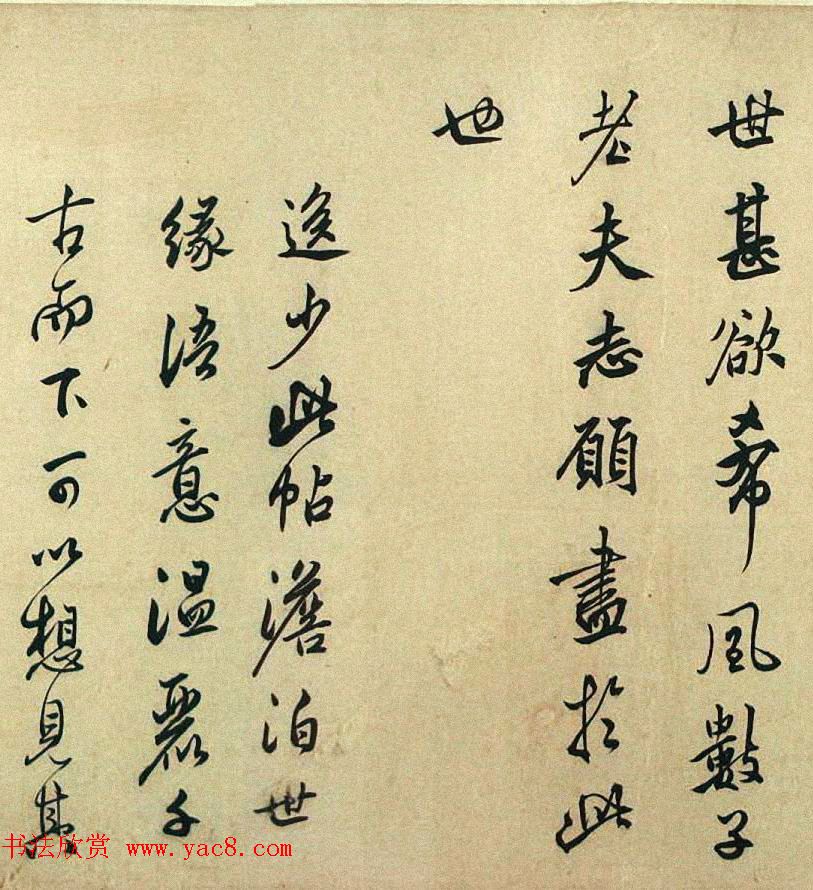 世甚欲希風數子
老夫志願盡於此
也
逸少此帖澹泊世
緣語意溫麗千
古而下可以想見其
书法欣赏 www.yac8.com